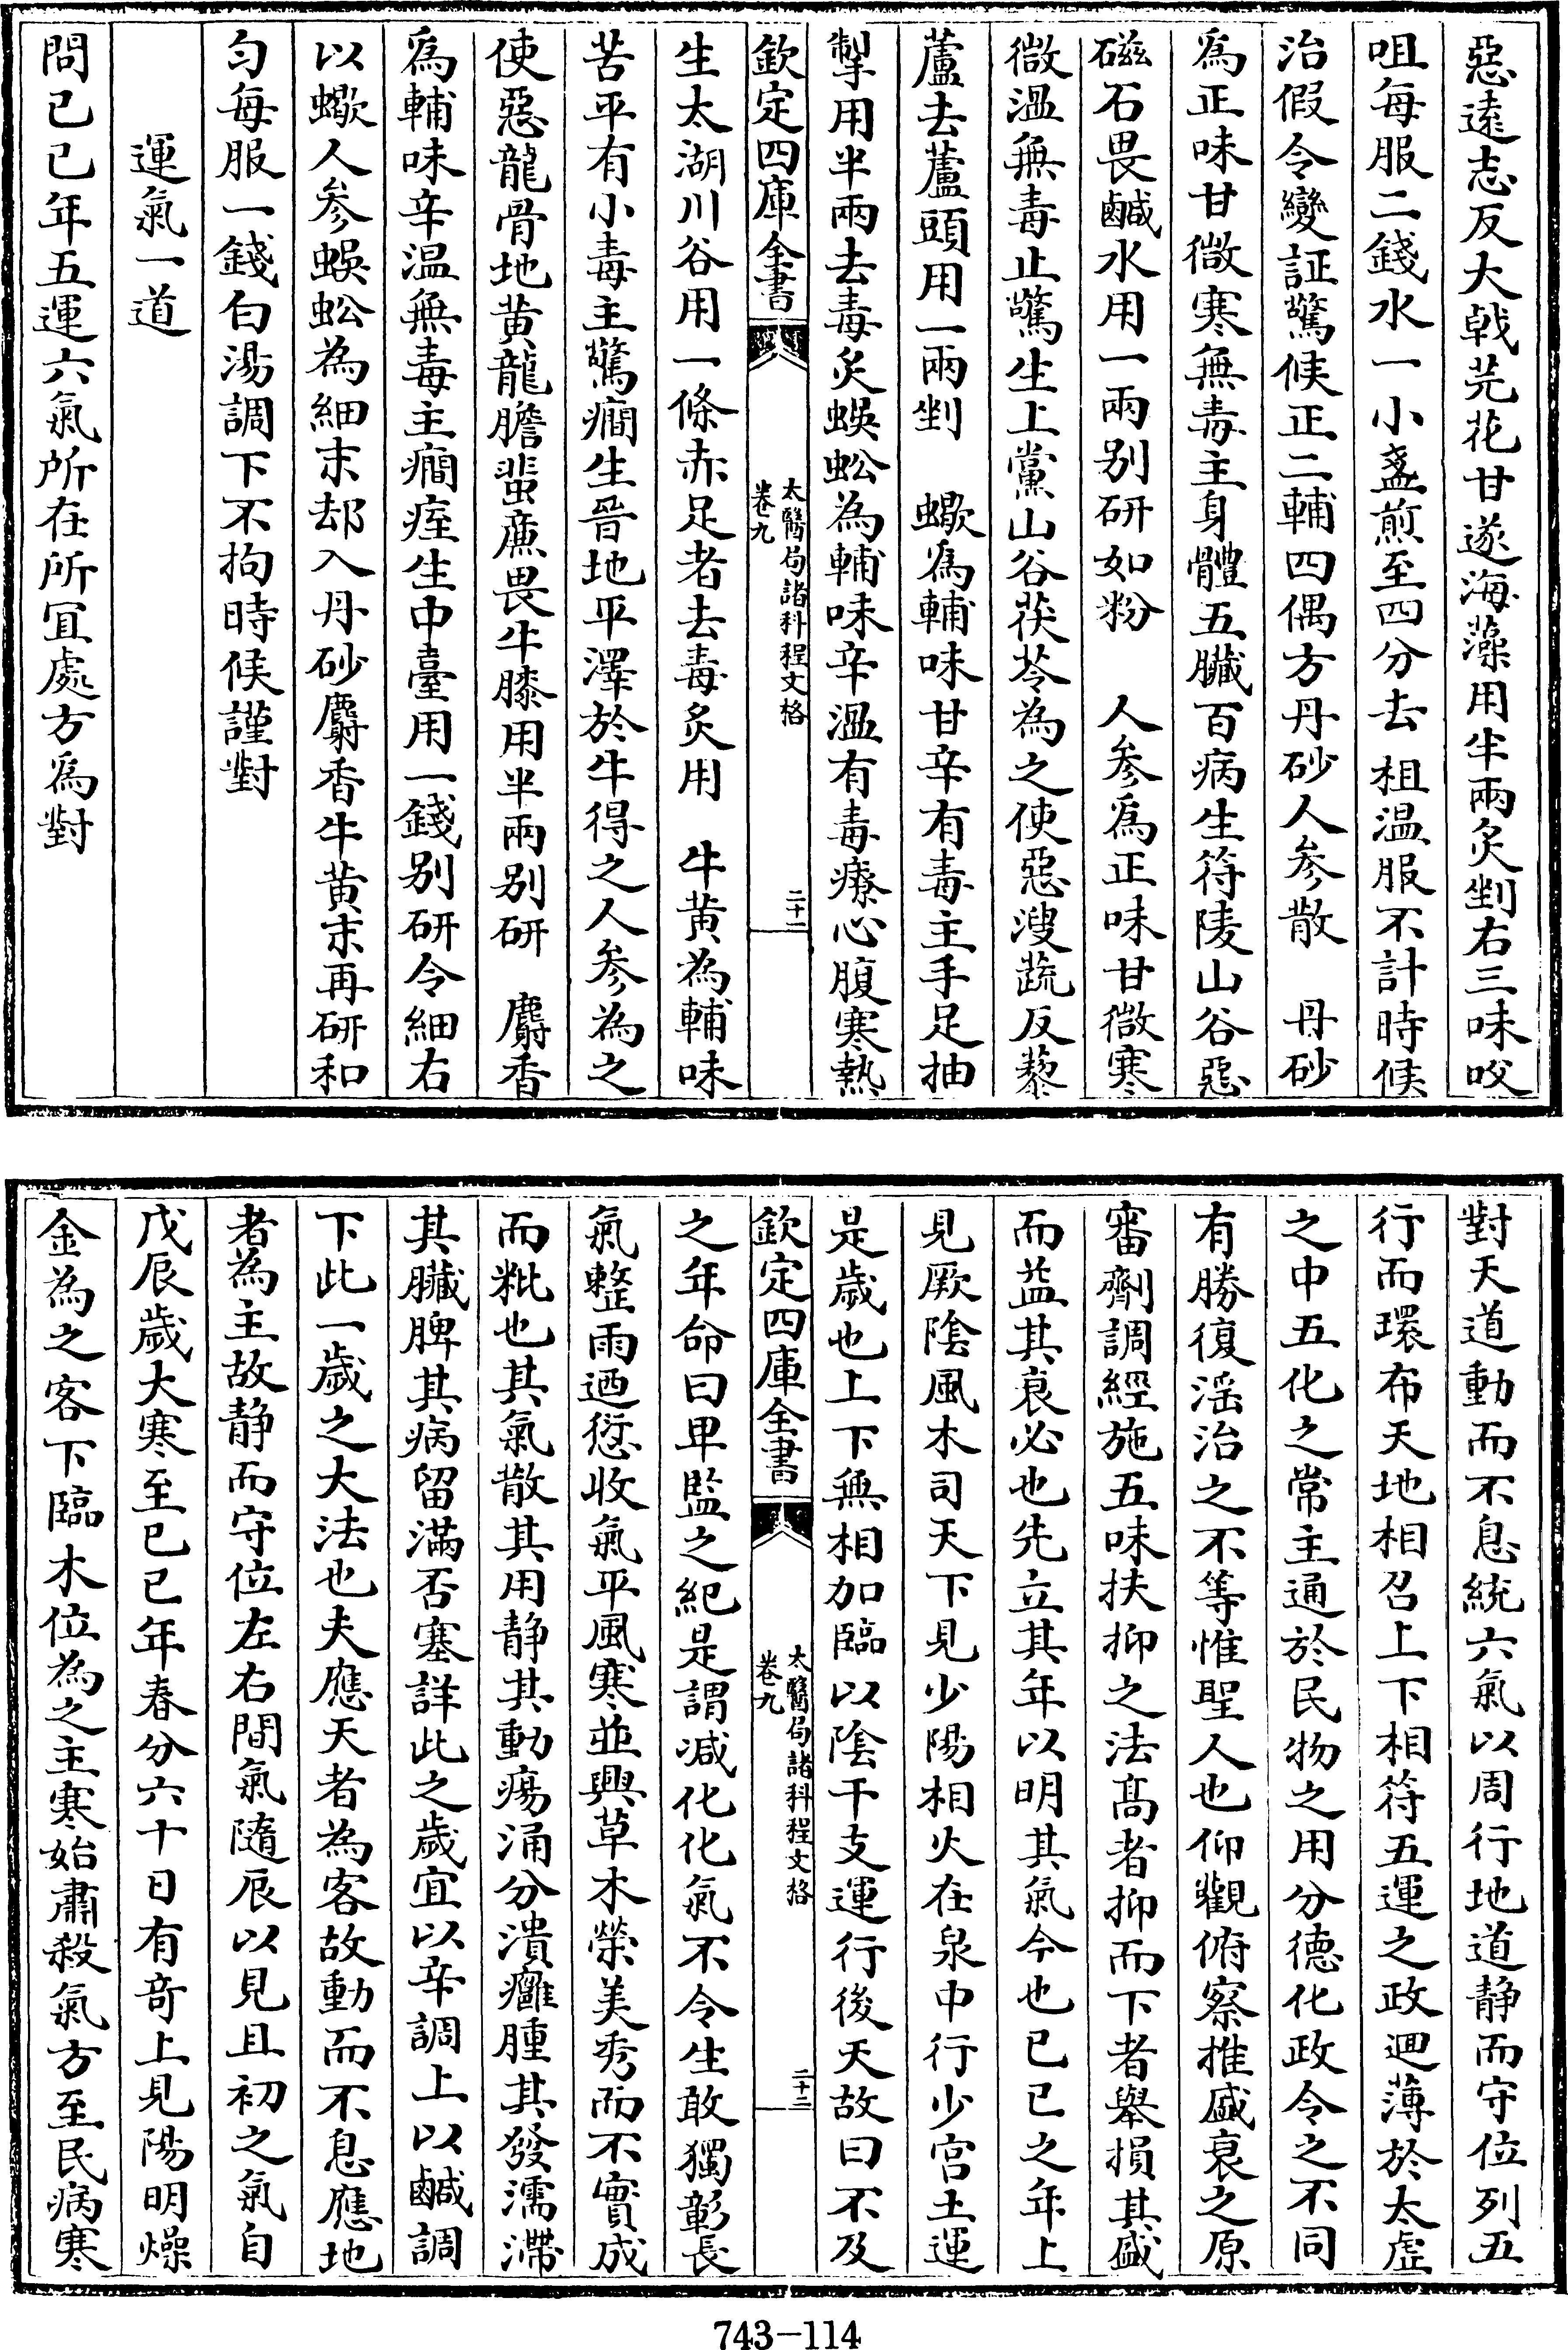 惡遠志反大戟芫花甘遂海藻用半兩炙剉右三味㕮
咀每服二錢水一小盞煎至四分去柤温服不計時候
治假令變証驚候正二輔四偶方丹砂人參散　丹砂
爲正味甘微寒無毒主身體五臟百病生符陵山谷惡
磁石畏鹹水用一兩别研如粉　人參爲正味甘微寒
微溫無毒止驚生上黨山谷茯苓為之使惡溲疏反藜
蘆去蘆頭用一兩剉　蠍爲輔味甘辛有毒主手足抽
掣用半兩去毒炙蜈蚣為輔味辛溫有毒療心腹寒熱
欽定四庫全書
太醫局諸科程文格
卷九
二十一
生太湖川谷用一條赤足者去毒炙用　牛黄為輔味
苦平有小毒主驚癇生晉地平澤於牛得之人參為之
使惡龍骨地黄龍膽蜚蠊畏牛膝用半兩别研　麝香
爲輔味辛温無毒主癇痓生中臺用一錢别研令細右
以蠍人參蜈蚣為細末却入丹砂麝香牛黄末再研和
匀每服一錢白湯調下不拘時候謹對
運氣一道
問己巳年五運六氣所在所宜處方爲對
對天道動而不息統六氣以周行地道静而守位列五
行而環布天地相召上下相符五運之政迴薄於太虚
之中五化之常主通於民物之用分德化政令之不同
有勝復淫治之不等惟聖人也仰觀俯察推盛衰之原
審劑調經施五味扶抑之法髙者抑而下者舉損其盛
而益其衰必也先立其年以明其氣今也己巳之年上
見厥陰風木司天下見少陽相火在泉中行少宫土運
是歲也上下無相加臨以陰干支運行後天故曰不及
欽定四庫全書
太醫局諸科程文格
卷九
二十二
之年命曰卑監之紀是謂减化化氣不令生政獨彰長
氣整雨迺愆收氣平風寒並興草木榮美秀而不實成
而粃也其氣散其用静其動瘍涌分潰癰腫其發濡滯
其臟脾其病留滿否塞詳此之歲宜以辛調上以鹹調
下此一歲之大法也夫應天者為客故動而不息應地
者為主故静而守位左右間氣隨辰以見且初之氣自
戊辰歲大寒至己巳年春分六十日有竒上見陽明燥
金為之客下臨木位為之主寒始肅殺氣方至民病寒
743-114